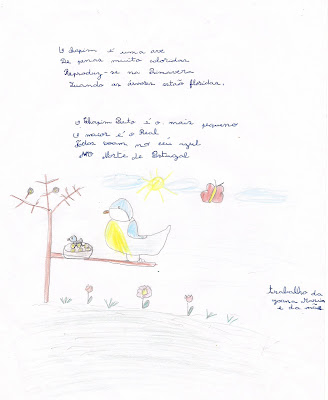 O chapim é uma ave
De penas muito coloridas
Reproduz-se na Primavera
Quando as árvores estão floridas.
O Chapim Preto é o mais pequeno
O maior é o Real
Todos voam no céu azul
No Norte de Portugal
trabalho da
Joana Maria
e da mãe